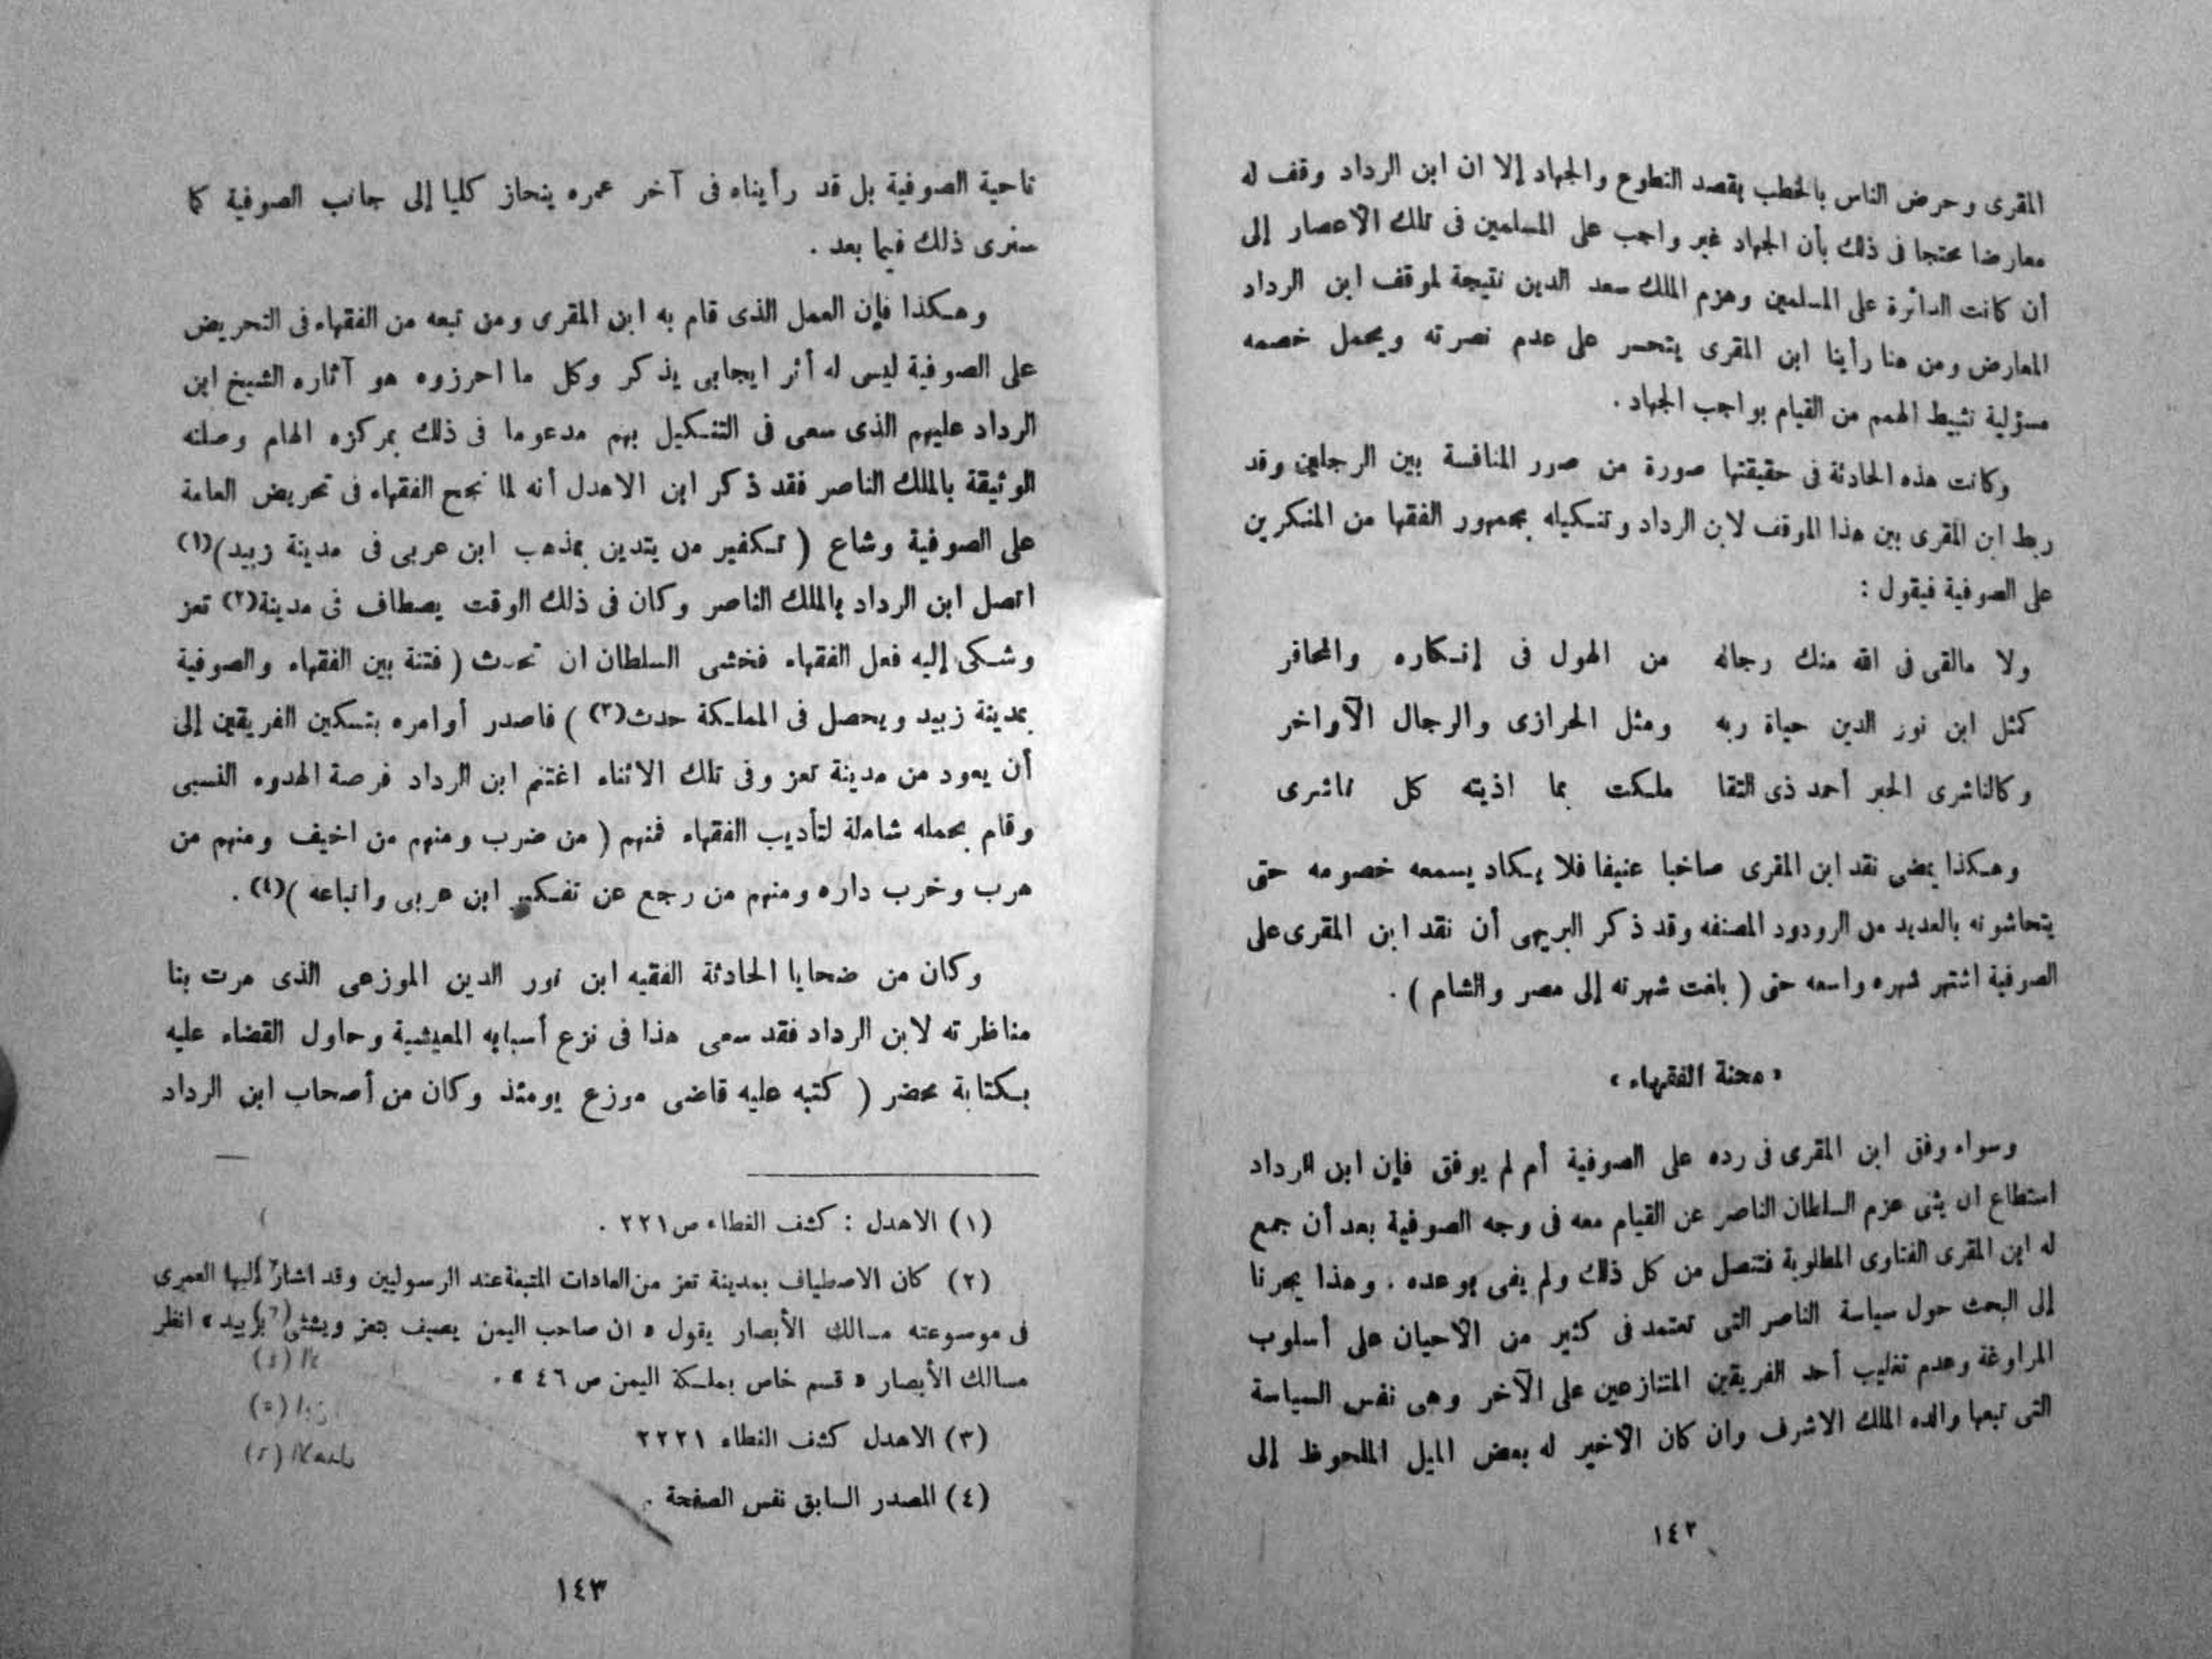 المقرى وحرض الناس بالخطب بقصد التطوع والجهاد إلا ان ابن الرداد وقف له
معارضا محتجا فى ذلك بأن الجهاد غير واجب على المسلمين فى تلك الاعصار إلى
أن كانت الدائرة على المسلمين وهزم الملك سعد الدين نتيجة لموقف ابن الرداد
المعارض ومن هنا رأينا ابن المقرى يتحسر على عدم نصرته ويحمل خصمه
مسؤلية تثبيط الهمم من القيام بواجب الجهاد .
وكانت هذه الحادثة فى حقيقتها صورة من صور المنافسة بين الرجلين وقد
ربط ابن المقرى بين هذا الموقف لابن الرداد وتنكيله بجمهور الفقها من المنكرين
على الصوفية فيقول :
ولا مالقى فى الله منك رجاله من الهول فى إنكاره والمحافر
كمثل ابن نور الدين حياة ربه ومثل الحرازى والرجال الآواخر
وكالناشرى الحبر أحمد ذى التقا ملكت بما اذيته كل ناشرى
وهكذا يمضى نقد ابن المقرى صاخبا عنيفا فلا يكاد يسمعه خصومه حتى
يتحاشونه بالعديد من الرودود المصنفه وقد ذكر البريهى أن نقد ابن المقرى على
الصوفية اشتهر شهره واسعه حتى ( بلغت شهرته إلى مصر والشام ) .
« محنة الفقهاء »
وسواء وفق ابن المقرى فى رده على الصوفية أم لم يوفق فإن ابن الرداد
استطاع ان يثنى عزم السلطان الناصر عن القيام معه فى وجه الصوفية بعد أن جمع
له ابن المقرى الفتاوى المطلوبة فتنصل من كل ذلك ولم يفى بوعده . وهذا يجرنا
إلى البحث حول سياسة الناصر التى تعتمد فى كثير من الاحيان على أسلوب
المراوغة وعدم تغليب أحد الفريقين المتنازعين على الآخر وهى نفس السياسة
التى تبعها والده الملك الاشرف وان كان الاخير له بعض الميل الملحوظ إلى
١٤٢
ناحية الصوفية بل قد رأيناه فى آخر عمره ينحاز كليا إلى جانب الصوفية كما
سنرى ذلك فيما بعد .
وهكذا فإن العمل الذى قام به ابن المقرى ومن تبعه من الفقهاء فى التحريض
على الصوفية ليس له أثر ايجابى يذكر وكل ما احرزوه هو آثاره الشيخ ابن
الرداد عليهم الذى سعى فى التنكيل بهم مدعوما فى ذلك بمركزه الهام وصلته
الوثيقة بالملك الناصر فقد ذكر ابن الاهدل أنه لما نجح الفقهاء فى تحريض العامة
على الصوفية وشاع ( تكفير من يتدين بمذهب ابن عربى فى مدينة زبيد)(١)
اتصل ابن الرداد بالملك الناصر وكان فى ذلك الوقت يصطاف فى مدينة(٢) تعز
وشكى إليه فعل الفقهاء فخشى السلطان ان تحدث ( فتنة بين الفقهاء والصوفية
بمدينة زبيد ويحصل فى المملكة حدث(٣) ) فاصدر أوامره بتسكين الفريقين إلى
أن يعود من مدينة تعز وفى تلك الاثناء اغتنم ابن الرداد فرصة الهدوء النسبى
وقام بحمله شاملة لتأديب الفقهاء فمنهم ( من ضرب ومنهم من اخيف ومنهم من
هرب وخرب داره ومنهم من رجع عن تفكير ابن عربى واتباعه )(٤) .
وكان من ضحايا الحادثة الفقيه ابن نور الدين الموزعى الذى مرت بنا
مناظرته لابن الرداد فقد سعى هذا فى نزع أسبابه المعيشية وحاول القضاء عليه
بكتابة محضر ( كتبه عليه قاضى موزع يومئذ وكان من أصحاب ابن الرداد
(١) الاهدل : كشف الغطاء ص٢٢١ .
(٢) كان الاصطياف بمدينة تعز من العادات المتبعة عند الرسوليين وقد اشار إليها العمرى
فى موسوعته مسالك الأبصار يقول « ان صاحب اليمن يصيف بتعز ويشتى بزبيد » انظر
مسالك الأبصار « قسم خاص بملكة اليمن ص ٤٦ » .
(٣) الاهدل كشف الغطاء ٢٢٢١
(٤) المصدر السابق نفس الصفحة .
١٤٣